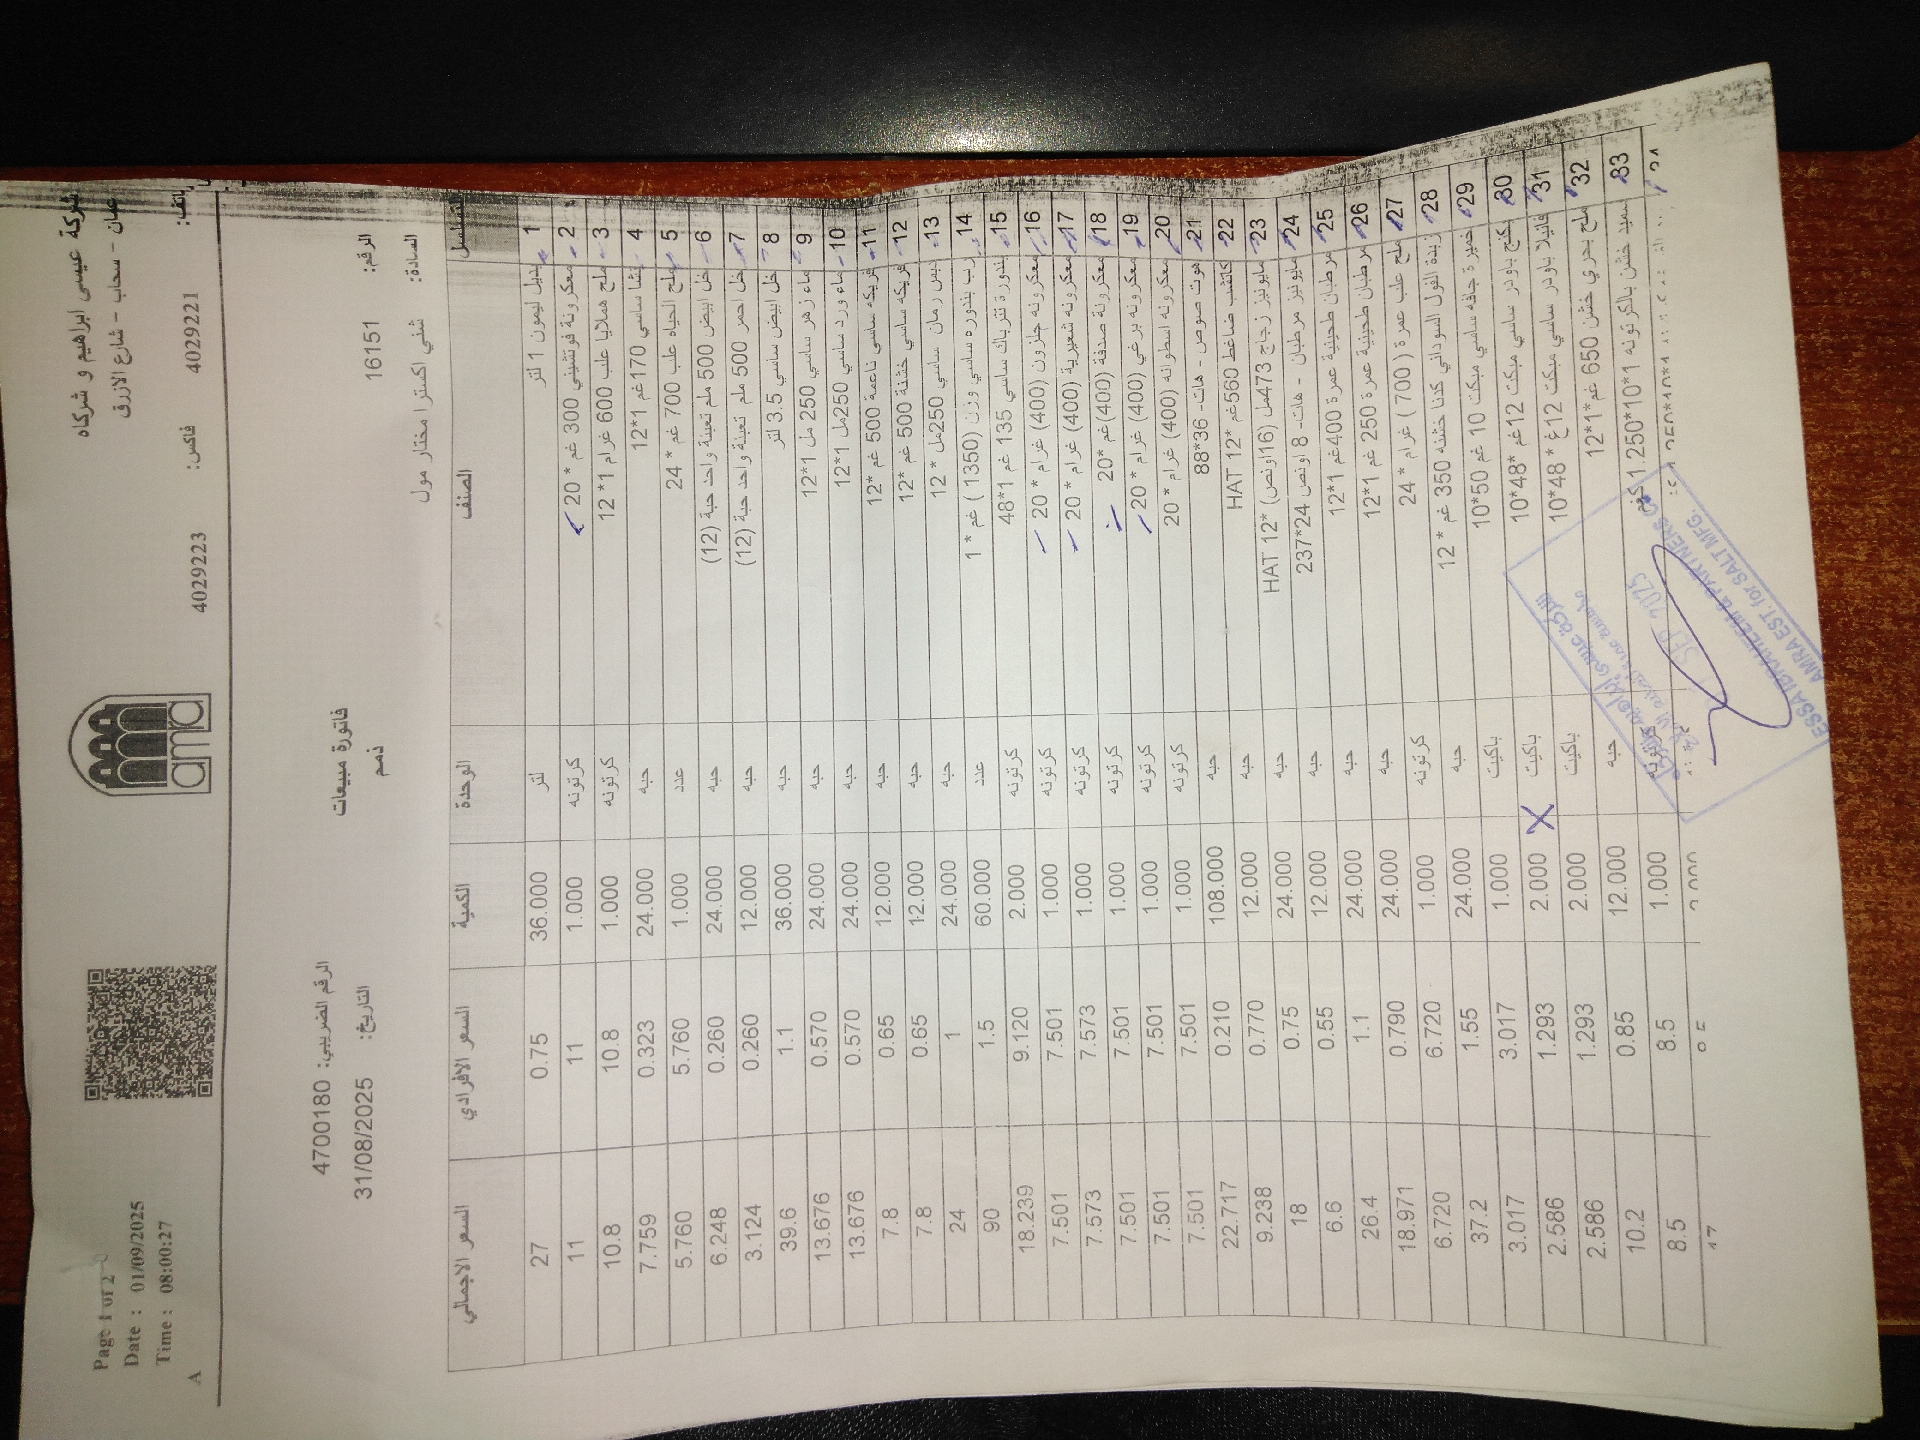 Page 1 of 2
Date : 01/09/2025
Time : 08:00:27
A
شركة عيسى ابراهيم و شركاه
عمان - سحاب - شارع الازرق
هاتف: 4029221 فاكس: 4029223
amra
فاتورة مبيعات
ذمم
الرقم: 16151
السادة: شني اكسترا مختار مول
الرقم الضريبي: 4700180
التاريخ: 31/08/2025
التسلسل الصنف الوحدة الكمية السعر الافرادي السعر الاجمالي
1 بديل ليمون 1 لتر لتر 36.000 0.75 27
2 معكرونة فوتشيني 300 غم * 20 كرتونه 1.000 11 11
3 ملح هملايا علب 600 غرام 1*12 كرتونه 1.000 10.8 10.8
4 نشا ساسي 170 غم 1*12 حبه 24.000 0.323 7.759
5 ملح الحياه علب 700 غم * 24 عدد 1.000 5.760 5.760
6 خل ابيض 500 ملم تعبئة واحد حبة (12) حبه 24.000 0.260 6.248
7 خل احمر 500 ملم تعبئة واحد حبة (12) حبه 12.000 0.260 3.124
8 خل ابيض ساسي 3.5 لتر حبه 36.000 1.1 39.6
9 ماء زهر ساسي 250 مل 1*12 حبه 24.000 0.570 13.676
10 ماء ورد ساسي 250مل 1*12 حبه 24.000 0.570 13.676
11 فريكه ساسي ناعمة 500 غم *12 حبه 12.000 0.65 7.8
12 فريكه ساسي خشنة 500 غم *12 حبه 12.000 0.65 7.8
13 دبس رمان ساسي 250مل * 12 حبه 24.000 1 24
14 رب بندوره ساسي وزن (1350 ) غم * 1 عدد 60.000 1.5 90
15 بندورة تتراباك ساسي 135 غم 1*48 كرتونه 2.000 9.120 18.239
16 معكرونه حلزون (400) غرام * 20 كرتونه 1.000 7.501 7.501
17 معكرونه شعيرية (400) غرام * 20 كرتونه 1.000 7.573 7.573
18 معكرونة صدفة (400) غم *20 كرتونه 1.000 7.501 7.501
19 معكرونه برغي (400) غرام * 20 كرتونه 1.000 7.501 7.501
20 معكرونه اسطوانه (400) غرام * 20 كرتونه 1.000 7.501 7.501
21 هوت صوص - هات- 36*88 حبه 108.000 0.210 22.717
22 كاتشب ضاغط 560غم *12 HAT حبه 12.000 0.770 9.238
23 مايونيز زجاج 473مل (16اونص) *12 HAT حبه 24.000 0.75 18
24 مايونيز مرطبان - هات- 8 اونص 24*237 حبه 12.000 0.55 6.6
25 مرطبان طحينية عمرة 400غم 1*12 حبه 24.000 1.1 26.4
26 مرطبان طحينية عمرة 250 غم 1*12 حبه 24.000 0.790 18.971
27 ملح علب عمرة ( 700 ) غرام * 24 كرتونه 1.000 6.720 6.720
28 زبدة الفول السوداني كدنا خشنه 350 غم * 12 حبه 24.000 1.55 37.2
29 خميرة جافه ساسي مبكت 10 غم 50*10 باكيت 1.000 3.017 3.017
30 بكنج باودر ساسي مبكت 12غم *48*10 باكيت 2.000 1.293 2.586
31 فانيلا باودر ساسي مبكت 12غ * 48*10 باكيت 2.000 1.293 2.586
32 ملح بحري خشن 650 غم*1*12 حبه 12.000 0.85 10.2
33 سميد خشن بالكرتونه 1*10*1.250 كغم كرتونه 1.000 8.5 8.5
شركة عيسى ابراهيم
SEP 2025
ESSA IBRAHEEM & PARTNERS CO.
AMRA EST. for SALT MFG.